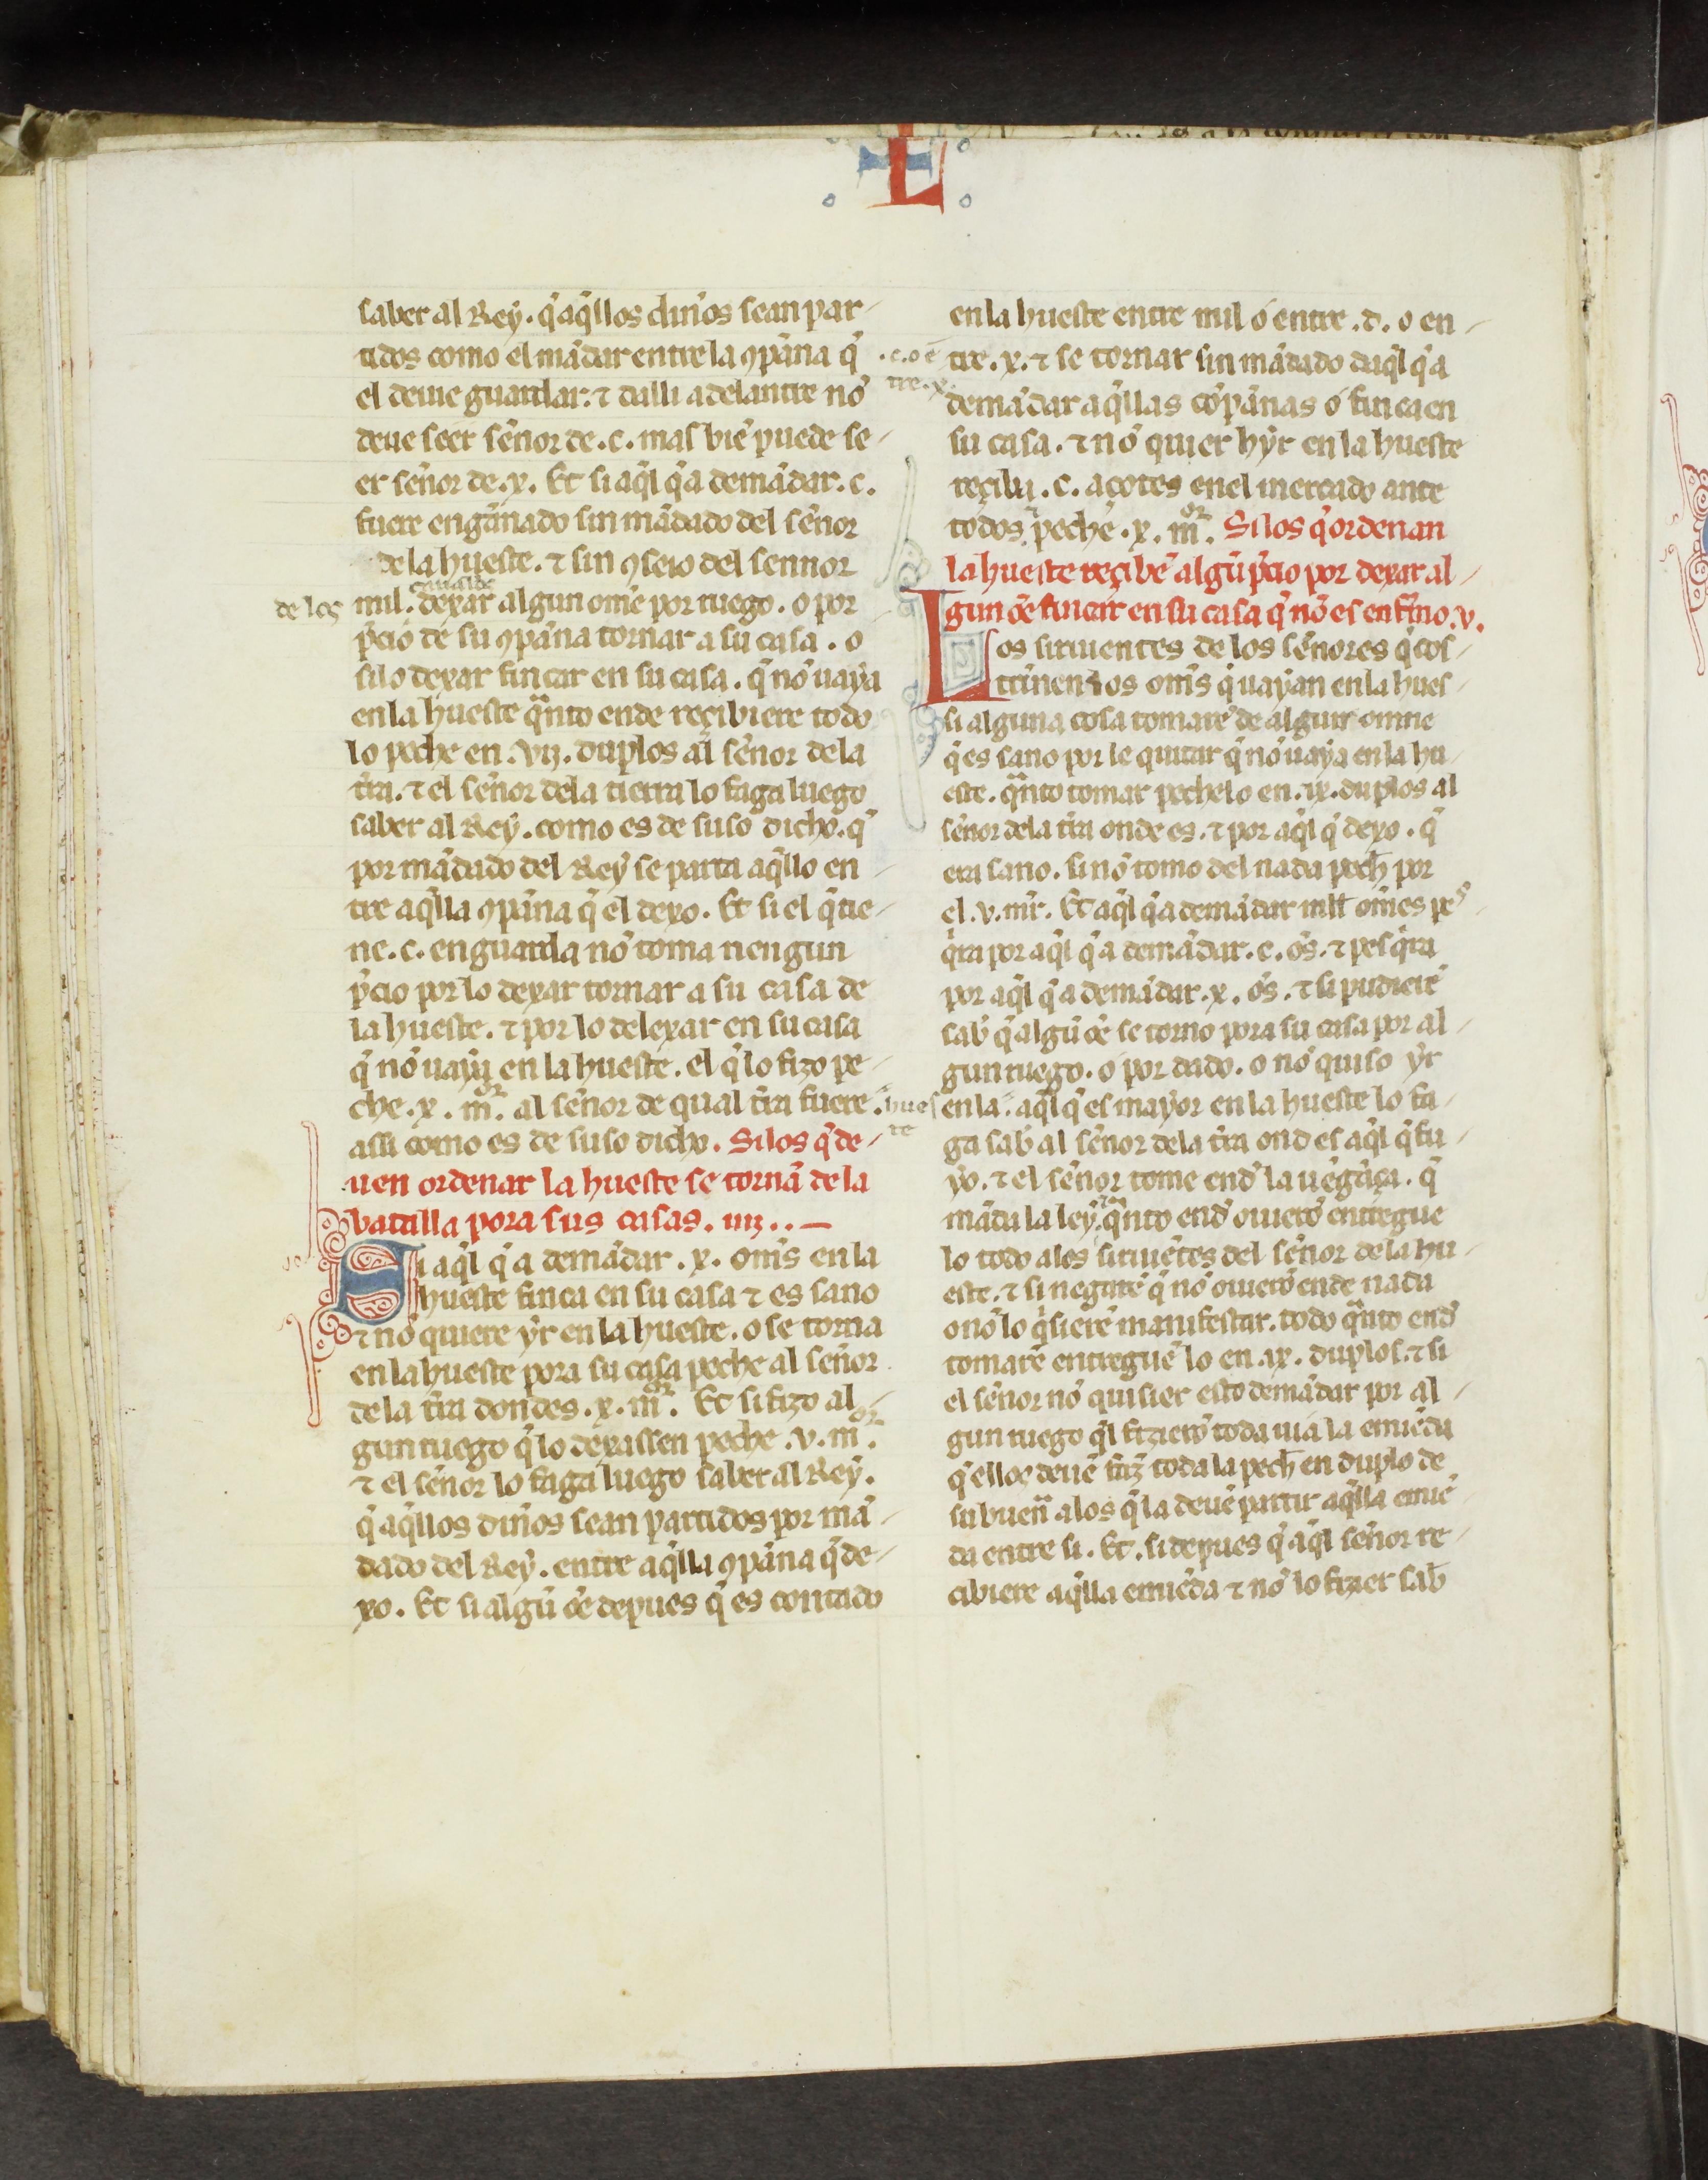 L
saber al Rey. q̃ aq̃llos din̾os sean par-
tidos como el mãdar entre la ꝯpãna q̃
el deuie guardar: ⁊ dalli adelantre nõ
deue seer sẽnor de .c. mas biẽ puede se-
er sẽnor de .x. Et si aq̃l q̃ a de mãdar .c.
fuere engãnado sin mãdado del sẽnor
de la hueste. ⁊ sin ꝯseio del sennor
de los mil. dexar algun omẽ por ruego. o por
p̃cio de su ꝯpãna tornar a su casa. o
silo dexar fincar en su casa. q̃ nõ uaya
en la hueste q̃nto ende reçibiere todo
lo peche en .vij. duplos al sẽnor de la
tr̃a. ⁊ el sẽnor dela tierra lo faga luego
saber al Rey. como es de suso dicho. q̃
por mãdado del Rey se parta aq̃llo en
tre aq̃lla ꝯpãna q̃ el dexo. Et si el q̃ tie-
ne .c. en guarda nõ toma nengun
p̃cio por lo dexar tornar a su casa de
la hueste. ⁊ por lo delexar en su casa
q̃ nõ uaya en la hueste. el q̃ lo fizo pe-
che .x. m̃or̃. al sẽnor de qual tr̃a fuere.
assi como es de suso dicho. Si los q̃ de-
uen ordenar la hueste se tornã de la
batalla pora sus casas. iiij..
Si aq̃l q̃ a de mãdar .x. om̃s en la
hueste finca en su casa ⁊ es sano
⁊ nõ quiere ẏr en la hueste. o se torna
en la hueste pora su casa peche al sẽnor
de la tr̃a dondes .x. m̃or̃. Et si fizo al-
gun ruego q̃ lo dexassen peche .v. m̃or̃.
⁊ el sẽnor lo faga luego saber al Rey.
q̃ aq̃llos din̾os sean partidos por mã-
dado del Rey. entre aq̃lla ꝯpãna q̃ de-
xo. Et si algũ oẽ depues q̃ es contado
en la hueste entre mil o entre .d. o en-
.c. o ẽ
tre .x.
tre .x. ⁊ se tornar sin mãdado daq̃l q̃ a
demãdar aq̃llas cõpãnas o finca en
su casa. ⁊ nõ quier hẏr en la hueste
reçiba .c. açotes en el mercado ante
todos peche .x. m̃or̃. Si los q̃ ordenan
la hueste reçibẽ algũ p̃cio por dexar al-
gun oẽ fincar en su casa q̃ nõ es enf̃mo. v.
Los siruientes de los sẽnores q̃ cos-
trinen los om̃s q̃ uayan en la hues-
si alguna cosa tomarẽ de algun omne
q̃ es sano por le quitar q̃ nõ uaya en la hu-
este. q̃nto tomar pechelo en .ix. duplos al
sẽnor dela tr̃a onde es. ⁊ por aq̃l q̃ dexo. q̃
era sano. si nõ tomo del nada pech̃ por
el .v. mr̃. Et aq̃l q̃ a demãdar mil om̃es pes
q̃ra por aq̃l q̃ a demãdar .c. oẽs. ⁊ pesq̃ra
por aq̃l q̃ a demãdar .x. oẽs. ⁊ si pudierẽ
sab̃ q̃ algũ oẽ se torno pora su casa por al-
gun ruego. o por dado. o nõ quiso ẏr
hues
te
en la. aq̃l q̃ es mayor en la hueste lo fa-
ga sab̃ al sẽnor dela tr̃a ond es aq̃l q̃ fu-
yo. ⁊ el sẽnor tome end̾ la uẽgãça. q̃
mãda la ley. q̃nto end̾ ouierõ entregue
lo todo alos siruiẽtes del sẽnor de la hu-
este. ⁊ si negarẽ q̃ nõ ouierõ ende nada
o nõ lo q̃sierẽ manifestar. todo q̃nto end̾
tomarẽ entreguẽ lo en .ix. duplos. ⁊ si
el sẽnor nõ quisier esto demãdar por al-
gun ruego q̃l fizierõ toda uia la emiẽda
q̃ ellos deuẽ faz̃ toda la pech̃ en duplo de
su buen̾a a los q̃ la deuẽ partir aq̃lla emiẽ
da entre si. Et. si depues q̃ aq̃l sẽnor re-
cibiere aq̃lla emiẽda ⁊ nõ lo fizier sab̃